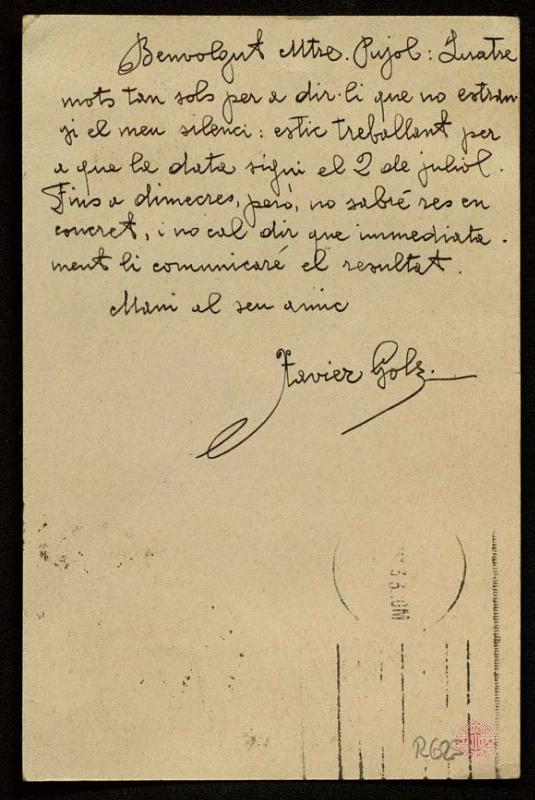 Benvolgut Mtre. Pujol: Quatre
mots tan sols per a dir-li que no estran-
yi el meu silenci: estic treballant per
a que la data sigui el 2 de juliol.
Fins a dimecres, però, no sabré res en
concret, i no cal dir que immediata-
ment li comunicaré el resultat.
Mani al seu amic
Xavier Gols.